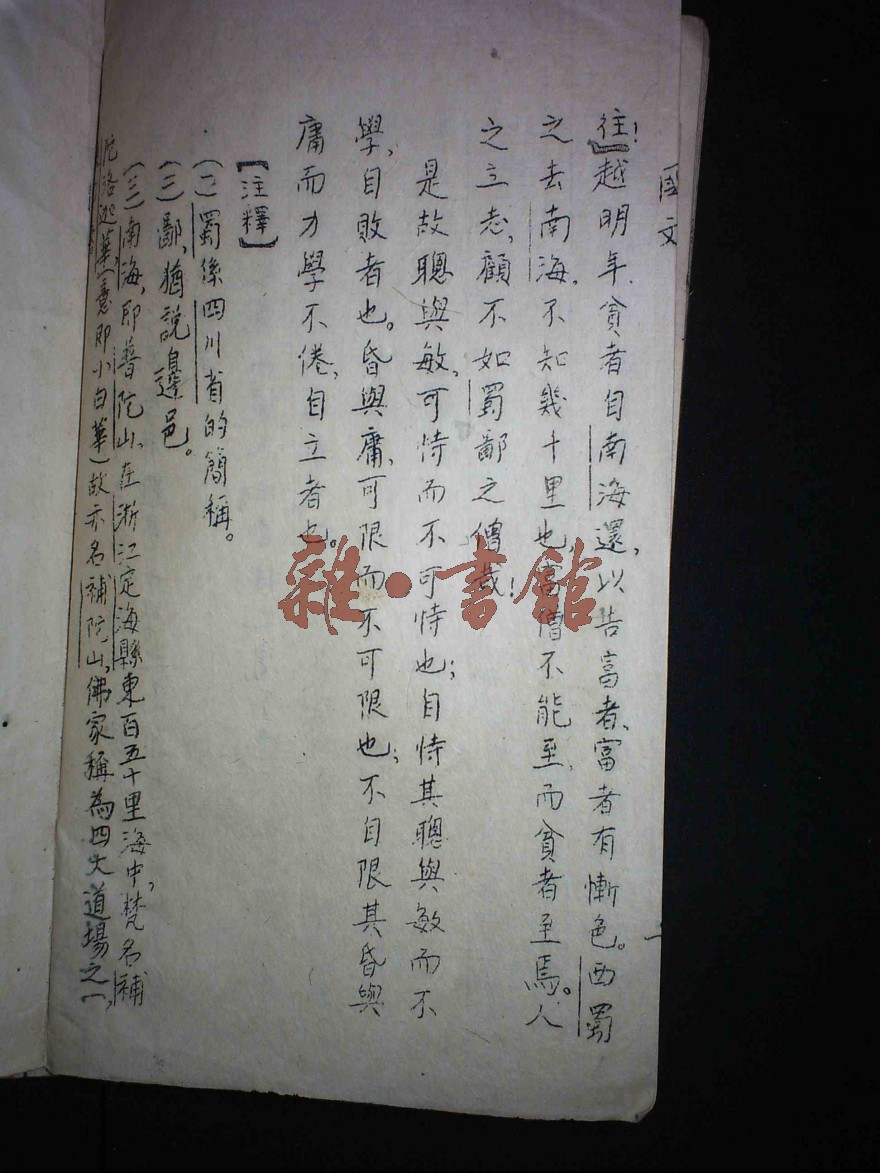 國文
一
往!」越明年,貧者自南海還,以告富者、富者有慚色。西蜀
之去南海,不知幾千里也,富僧不能至,而貧者至焉。人
之立志,顧不如蜀鄙之僧哉!
是故聰與敏,可恃而不可恃也;自恃其聰與敏而不
學,自敗者也。昏與庸,可限而不可限也;不自限其昏與
庸而力學不倦,自立者也。
【注釋】
(一)蜀係四川省的簡稱。
(二)鄙,猶說邊邑。
(三)南海,即普陀山,在浙江定海縣東百五十里海中,梵名補
陀洛迦(華意即小白華)故亦名補陀山,佛家稱為四大道場之一,
雜·書館